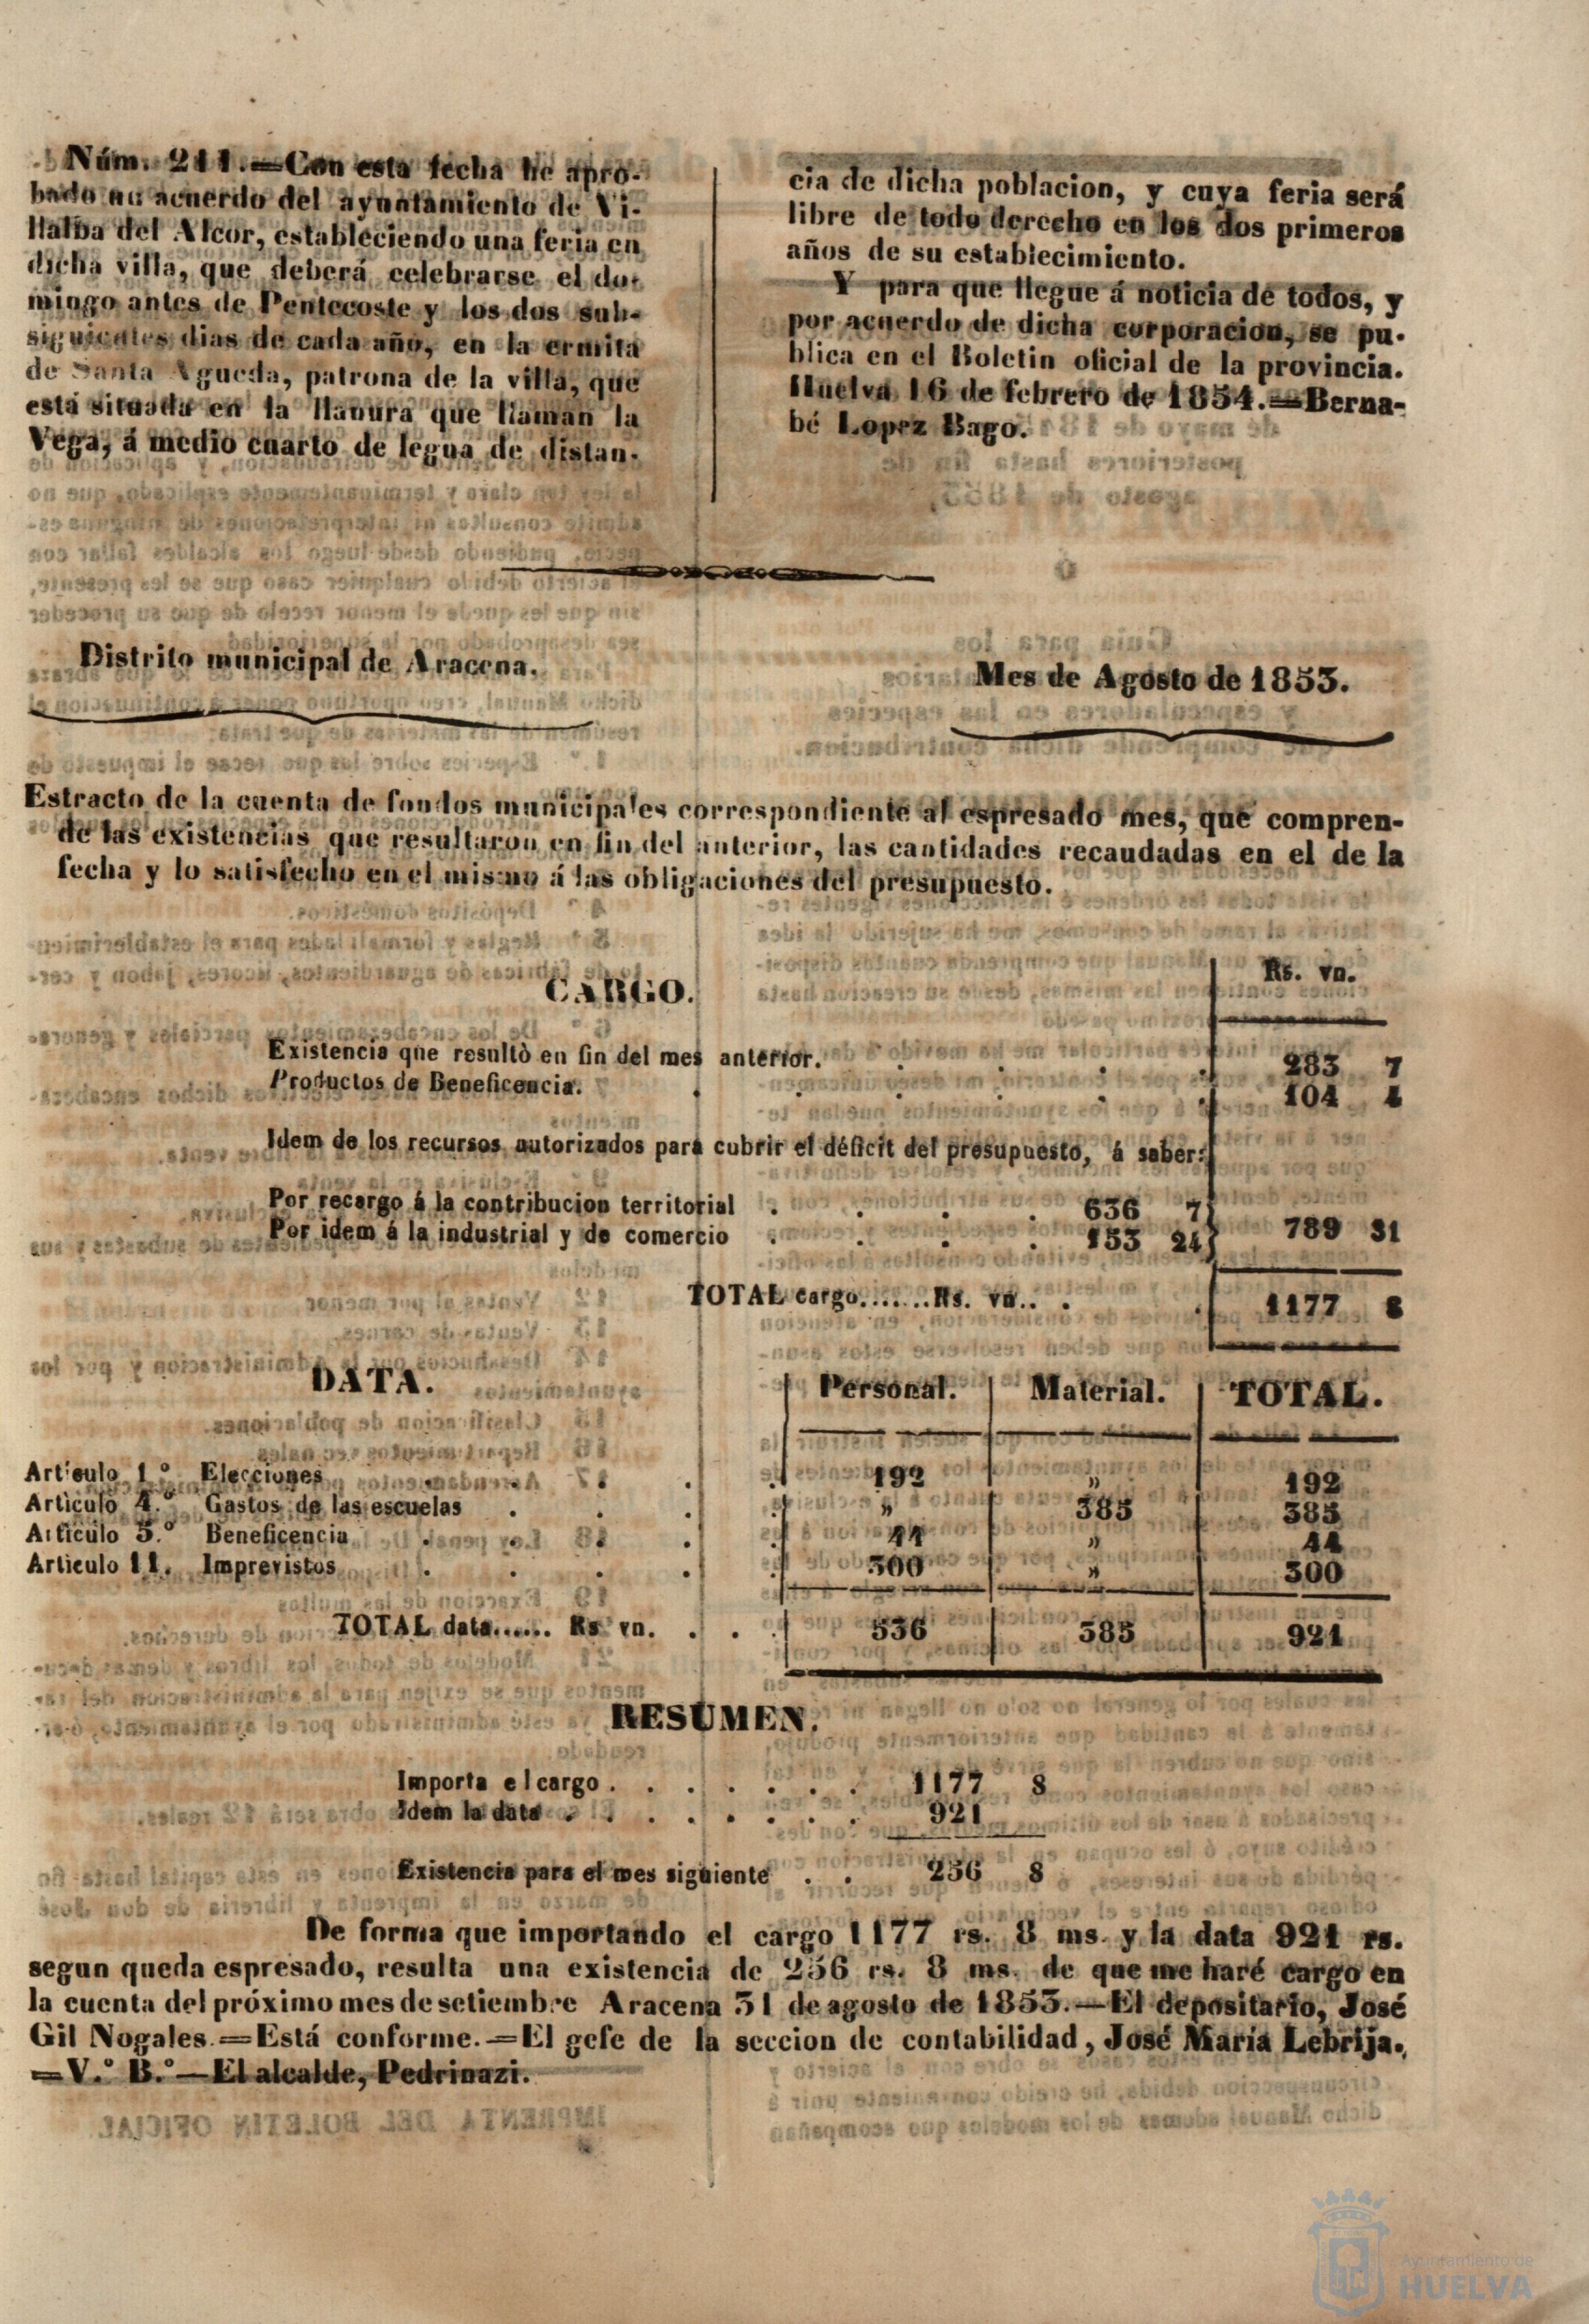 Núm. 211.=Con esta fecha he apro-
bado un acuerdo del ayuntamiento de Vi-
llalba del Alcor, estableciendo una feria en
dicha villa, que deberá celebrarse el do-
mingo antes de Pentecoste y los dos sub-
siguientes dias de cada año, en la ermita
de Santa Agueda, patrona de la villa, que
está situada en la llanura que llaman la
Vega, á medio cuarto de legua de distan-
cia de dicha poblacion, y cuya feria será
libre de todo derecho en los dos primeros
años de su establecimiento.
Y para que llegue á noticia de todos, y
por acuerdo de dicha corporacion, se pu-
blica en el Boletin oficial de la provincia.
Huelva 16 de febrero de 1854.=Berna-
bé Lopez Bago.
Distrito municipal de Aracena.
Mes de Agosto de 1853.
Estracto de la cuenta de fondos municipales correspondiente al espresado mes, que compren-
de las existencias que resultaron en fin del anterior, las cantidades recaudadas en el de la
fecha y lo satisfecho en el mismo á las obligaciones del presupuesto.
CARGO. Rs. vn.
Existencia que resultò en fin del mes anterior. . . . . 283 7
Productos de Beneficencia. . . . . . . 104 4
Idem de los recursos autorizados para cubrir el déficit del presupuesto, á saber:
Por recargo á la contribucion territorial . . . . 636 7
Por idem á la industrial y de comercio . . . . 153 24 } 789 31
TOTAL cargo.......Rs. vn.. . . 1177 8
DATA. Personal. Material. TOTAL.
Artículo 1.º Elecciones . . . . . 192 » 192
Artículo 4.º Gastos de las escuelas . . . . » 385 385
Artículo 5.º Beneficencia . . . . . 44 » 44
Artículo 11. Imprevistos . . . . . 300 » 300
TOTAL data...... Rs vn. . . . 536 385 921
RESUMEN.
Importa el cargo . . . . . . . 1177 8
Idem la data . . . . . . . . 921
Existencia para el mes siguiente . . 256 8
De forma que importando el cargo 1177 rs. 8 ms. y la data 921 rs.
segun queda espresado, resulta una existencia de 256 rs. 8 ms. de que me haré cargo en
la cuenta del próximo mes de setiembre Aracena 31 de agosto de 1853.—El depositario, José
Gil Nogales.=Está conforme.=El gefe de la seccion de contabilidad, José María Lebrija.
=V.º B.º—El alcalde, Pedrinazi.
Ayuntamiento de
HUELVA